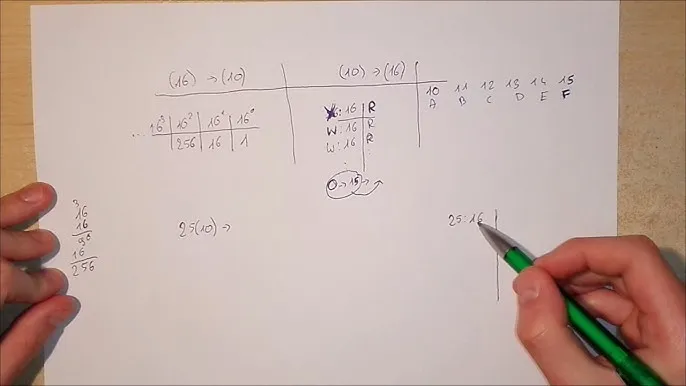 (16) → (10)
(10) → (16)
10 11 12 13 14 15
A B C D E F
... 16³ 16² 16¹ 16⁰
256 16 1
: 16 R
W: 16 R
W: 16 R
:
0 → 15 →
3
16
16
96
16
256
25(10) →
25:16